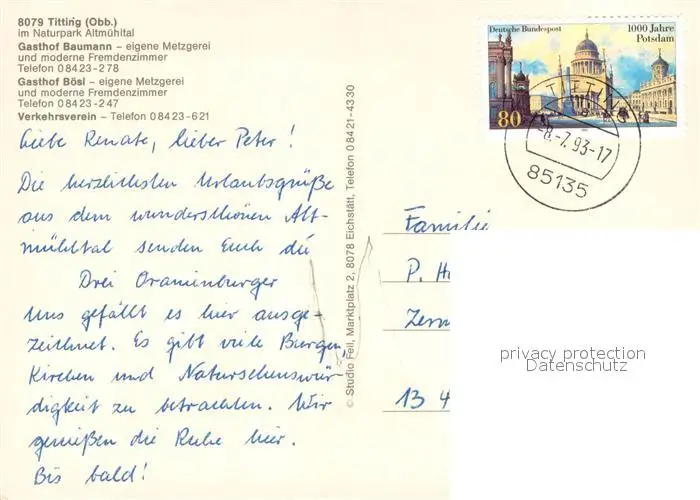 8079 Titting (Obb.)
im Naturpark Altmühltal
Gasthof Baumann – eigene Metzgerei
und moderne Fremdenzimmer
Telefon 0 84 23 - 278
Gasthof Bösl – eigene Metzgerei
und moderne Fremdenzimmer
Telefon 0 84 23 - 247
Verkehrsverein – Telefon 0 84 23 - 621
Liebe Renate, lieber Peter!
Die herzlichsten Urlaubsgrüße
aus dem wunderschönen Alt-
mühltal senden Euch die
Drei Oranienburger
Uns gefällt es hier ausge-
zeichnet. Es gibt viele Burgen,
Kirchen und Natursehenswür-
digkeit zu betrachten. Wir
genießen die Ruhe hier.
Bis bald!
© Studio Feil, Marktplatz 2, 8078 Eichstätt, Telefon 0 84 21 - 4330
Deutsche Bundespost
1000 Jahre
Potsdam
80
TITTING
-8.-7.93-17
85135
Familie
P. H
Zern
13 4
privacy protection
Datenschutz